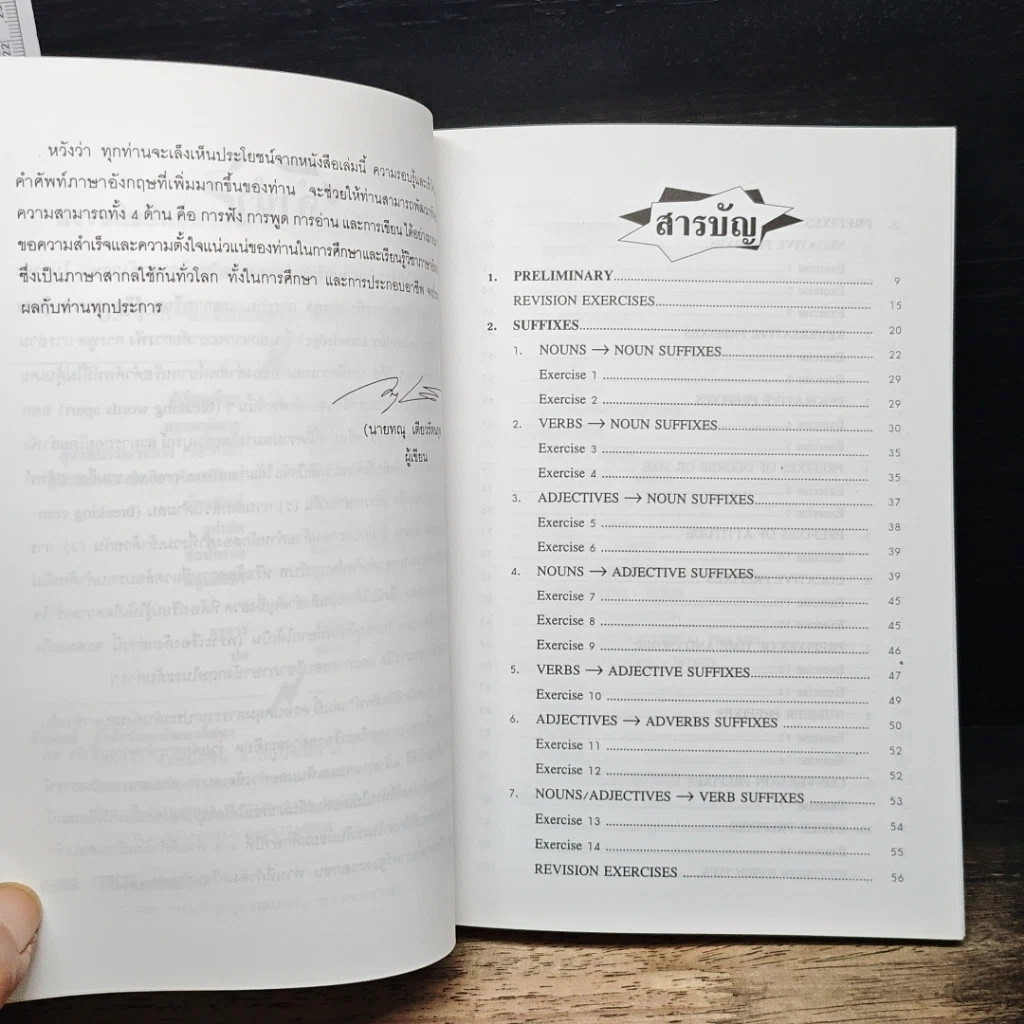 หวังว่า ทุกท่านจะเล็งเห็นประโยชน์จากหนังสือเล่มนี้ ความรอบรู้และ
คำศัพท์ภาษาอังกฤษที่เพิ่มมากขึ้นของท่าน จะช่วยให้ท่านสามารถพัฒนา
ความสามารถทั้ง 4 ด้าน คือ การฟัง การพูด การอ่าน และการเขียน
ขอความสำเร็จและความตั้งใจแน่วแน่ของท่านในการศึกษาและเรียนรู้วิชาภาษา
ซึ่งเป็นภาษาสากลใช้กันทั่วโลก ทั้งในการศึกษา และการประกอบอาชีพ
ผลกับท่านทุกประการ
(นายทณุ
ผู้เขียน
สารบัญ
1. PRELIMINARY 9
REVISION EXERCISES 15
2. SUFFIXES 20
1. NOUNS → NOUN SUFFIXES 22
Exercise 1 29
Exercise 2 29
2. VERBS → NOUN SUFFIXES 30
Exercise 3 35
Exercise 4 35
3. ADJECTIVES → NOUN SUFFIXES 37
Exercise 5 38
Exercise 6 39
4. NOUNS → ADJECTIVE SUFFIXES 39
Exercise 7 45
Exercise 8 45
Exercise 9 46
5. VERBS → ADJECTIVE SUFFIXES 47
Exercise 10 49
6. ADJECTIVES → ADVERBS SUFFIXES 50
Exercise 11 52
Exercise 12 52
7. NOUNS/ADJECTIVES → VERB SUFFIXES 53
Exercise 13 54
Exercise 14 55
REVISION EXERCISES 56